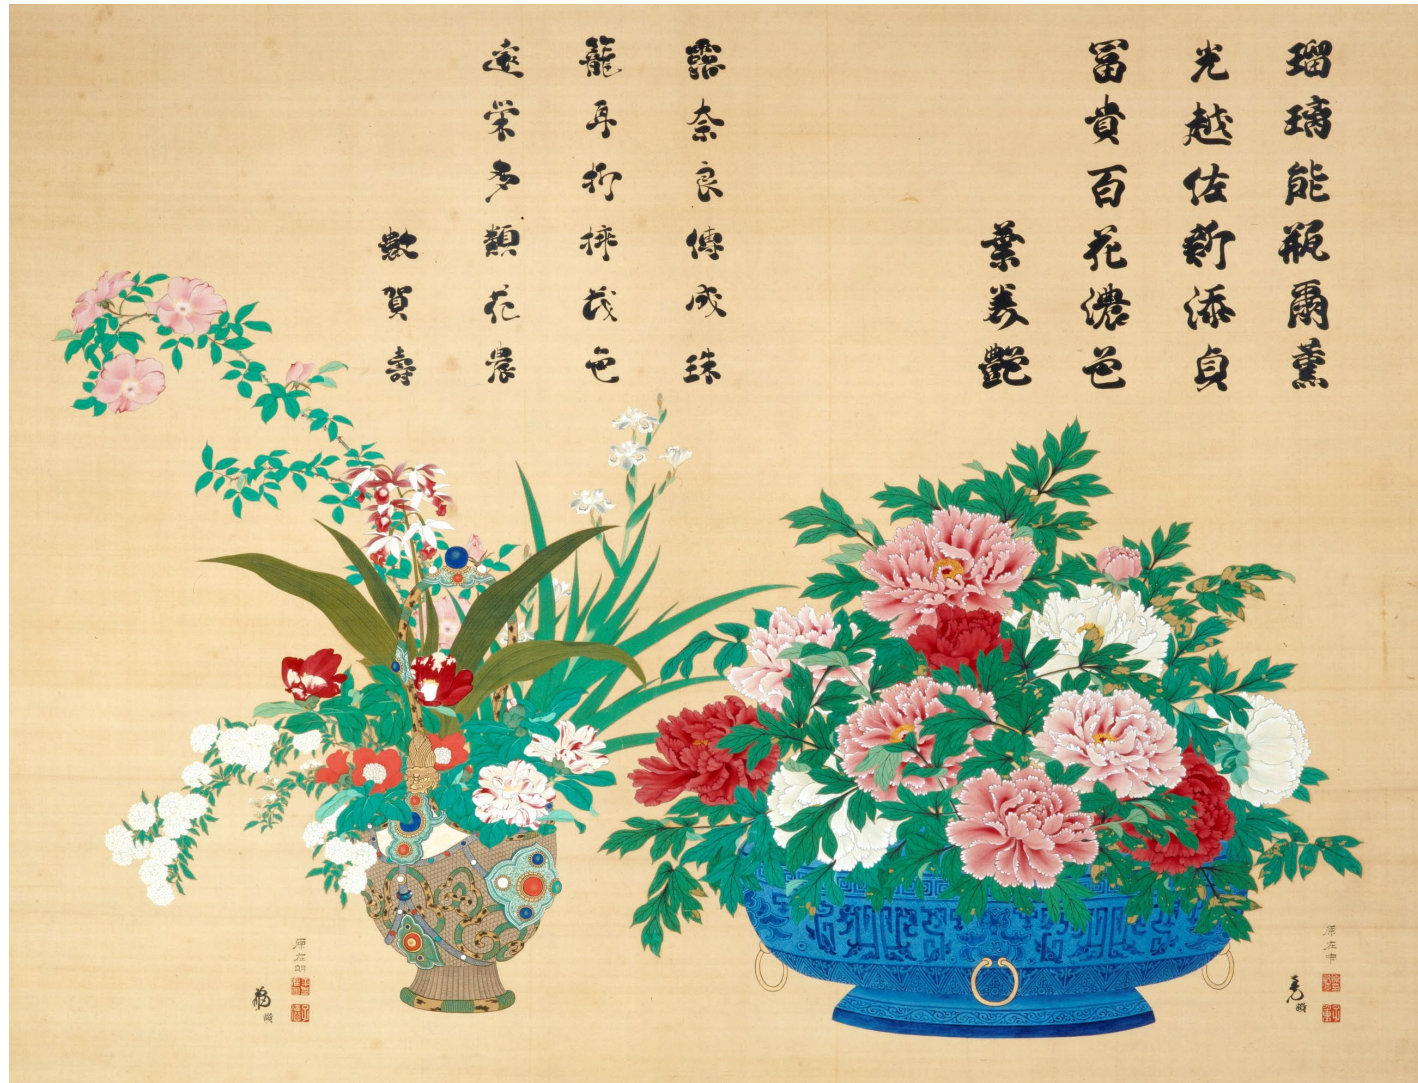 瑠璃能瓶爾薫
光越佐新添貞
冨貴百花濃色
葉美艶
露奈良傳成珠
籠耳折挿茂色
遠栄多類花農
數賀壽
原在中
原在明